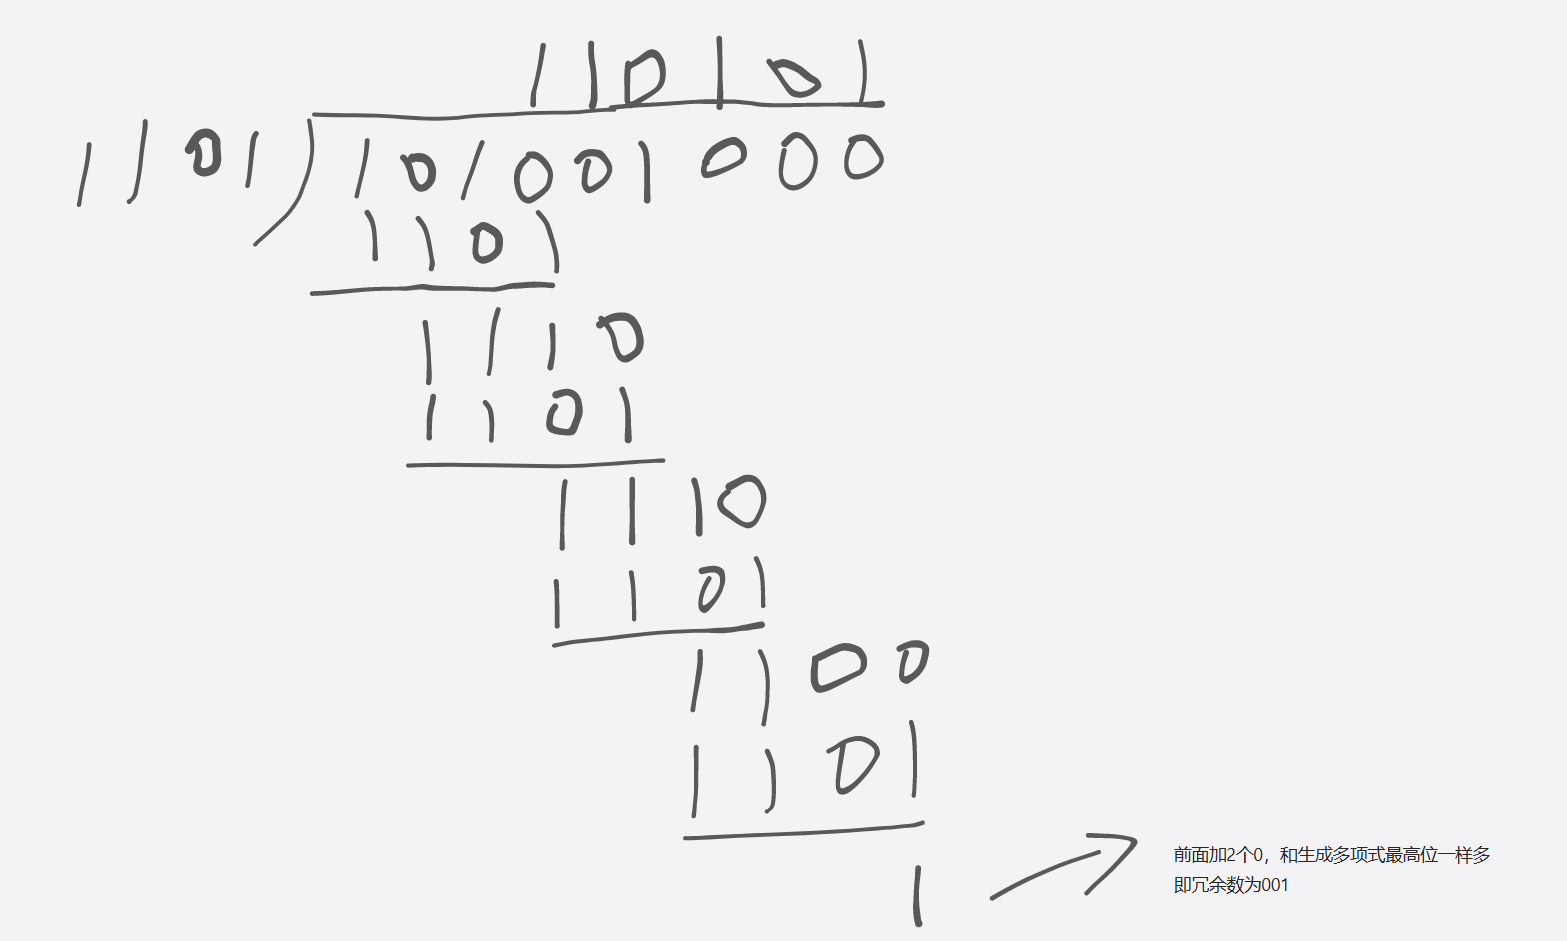 110101
1101)101001000
1101
1110
1101
1110
1101
1100
1101
1
前面加2个0，和生成多项式最高位一样多
即冗余数为001